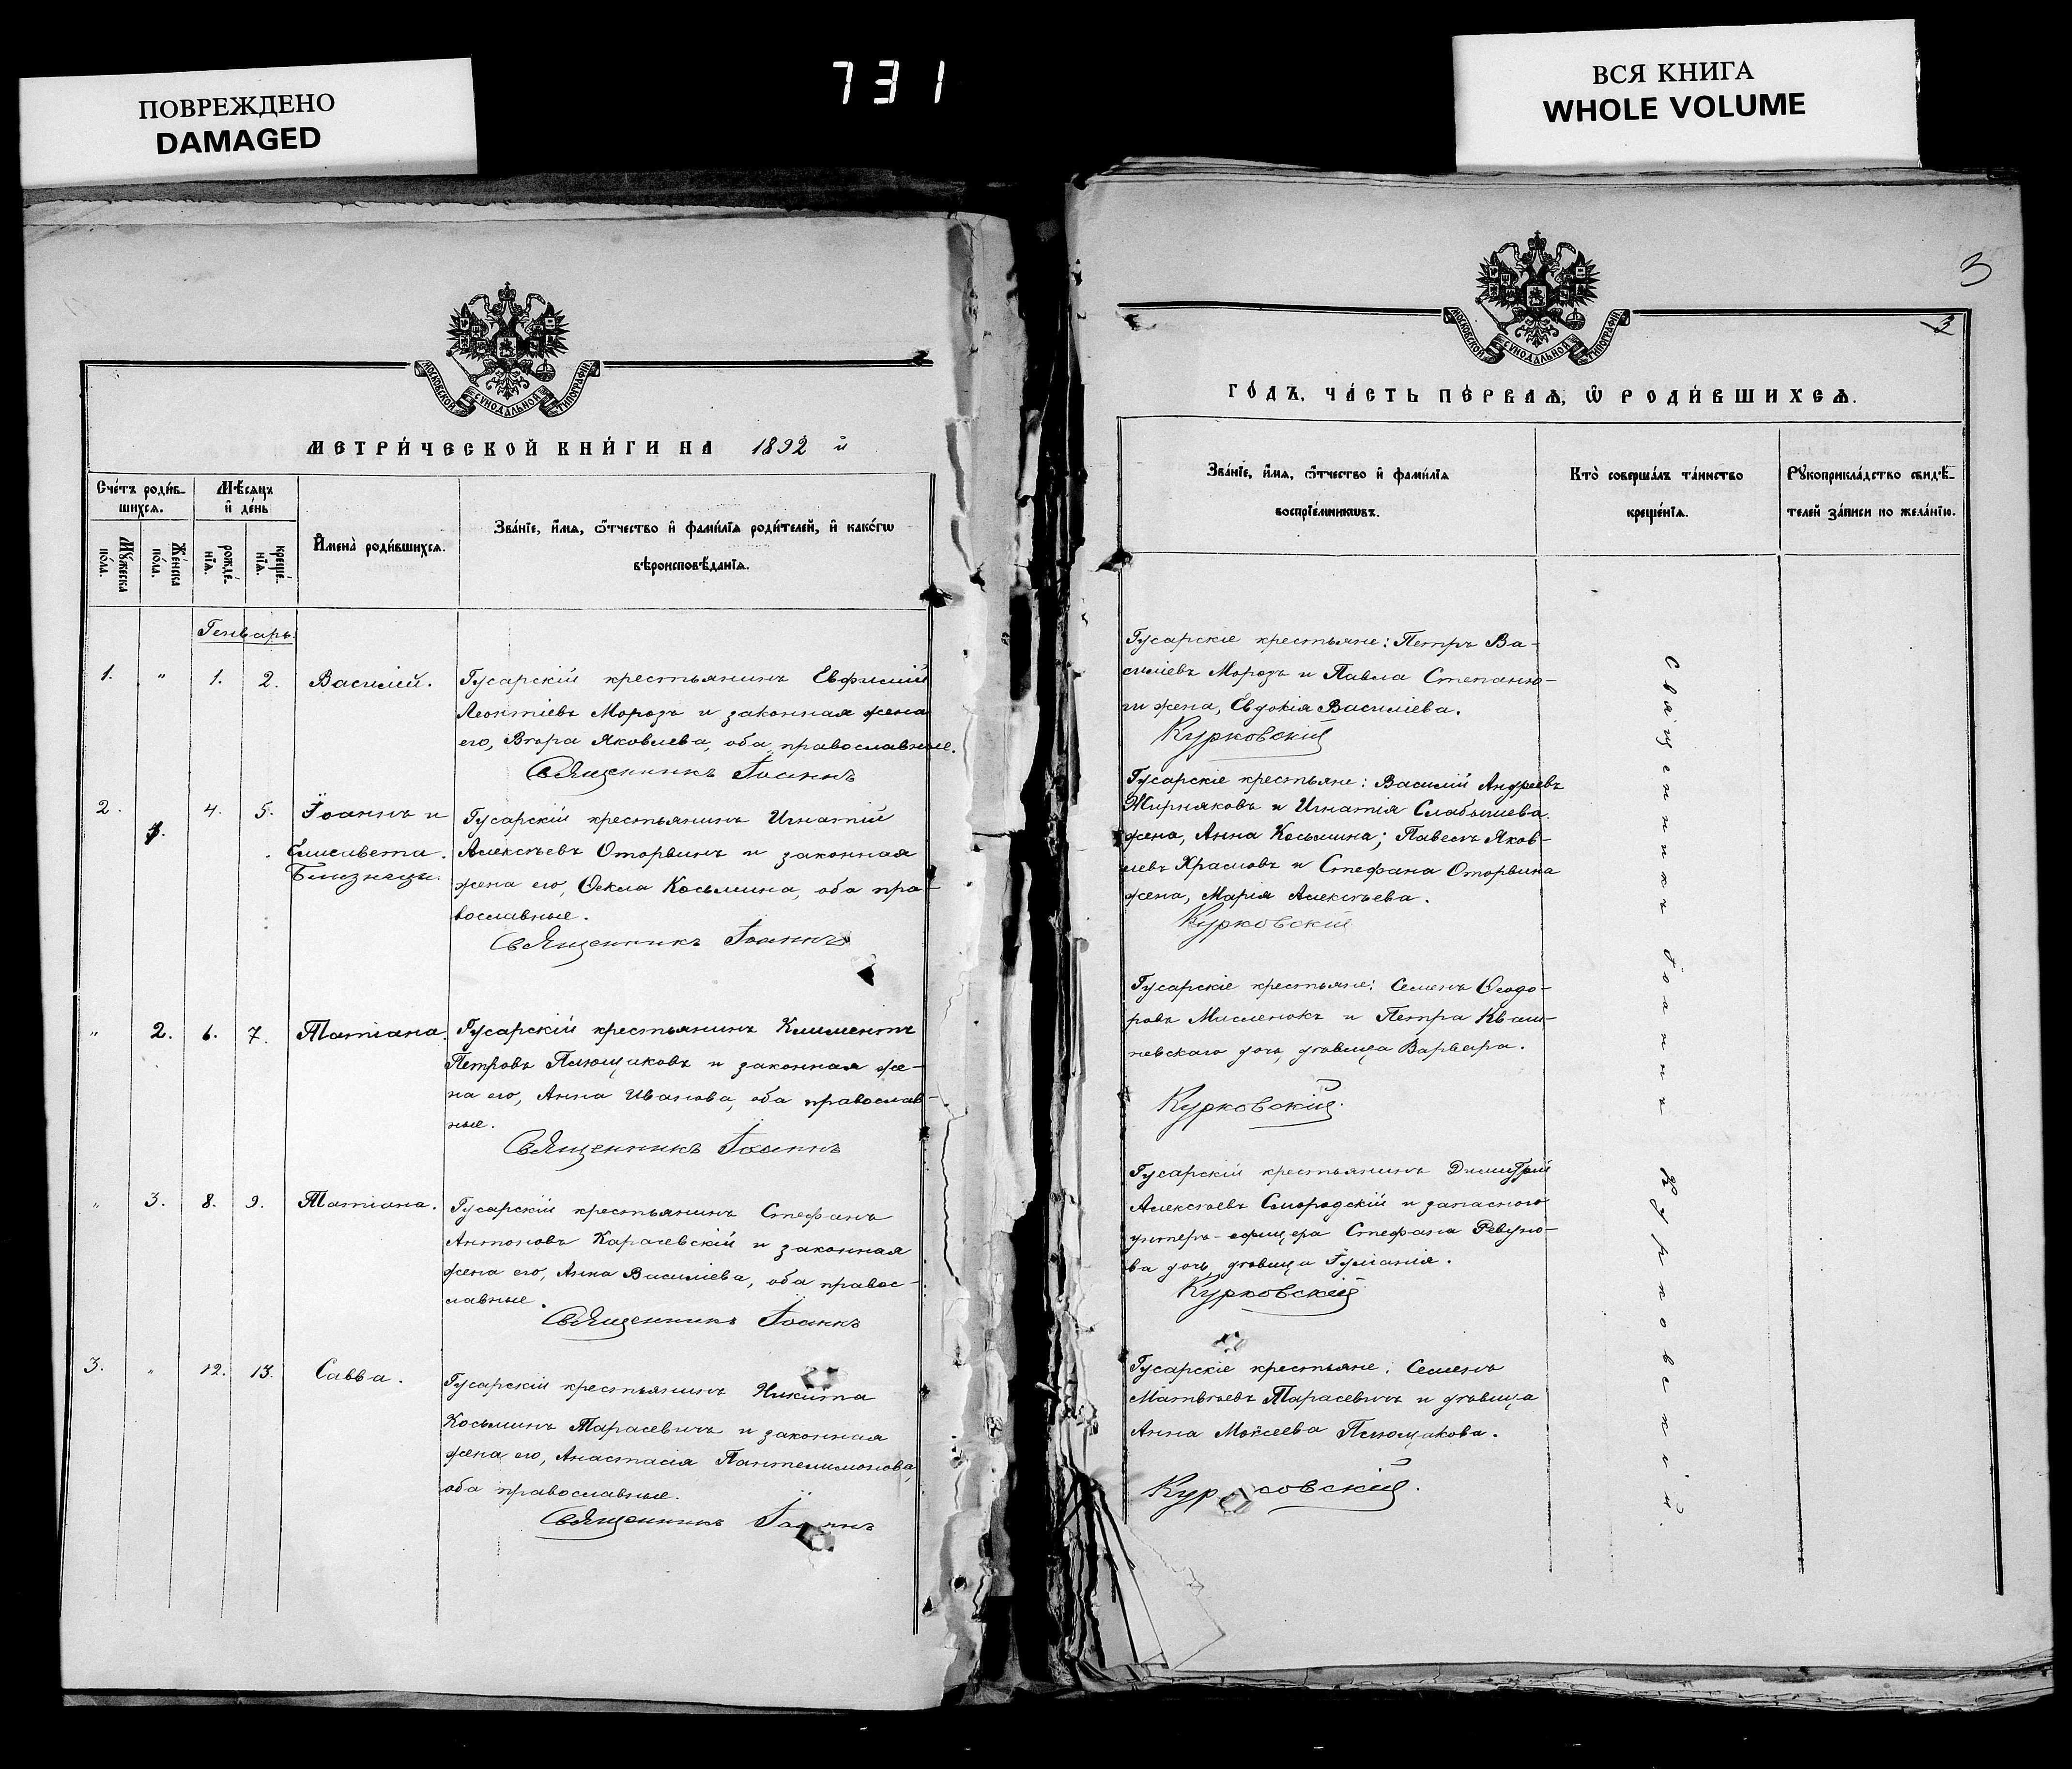 ПОВРЕЖДЕНО
DAMAGED
731
ВСЯ КНИГА
WHOLE VOLUME
МОСКОВСКОЙ СѴНОДАЛЬНОЙ ТИПОГРАФІИ
МЕТРИ́ЧЕСКОЙ КНИ́ГИ НА 1892 й
Сче́тъ роди́в-
шихсѧ.
Мѣ́сѧцъ
и҆ де́нь
Мꙋ́жеска
по́ла.
Же́нска
по́ла.
рожде́-
нїѧ.
креще́-
нїѧ.
И҆мена̀ роди́вшихсѧ.
Зва́нїе, и҆́мѧ, ѻ҆́тчество и҆ фами́лїѧ роди́телей, и҆ како́гѡ
вѣроисповѣ́данїѧ.
Генварь.
1. " 1. 2. Василій. Гусарскій крестьянинъ Евфимій
Леонтіевъ Морозъ и законная жена
его, Вѣра Яковлева, оба православные.
Священникъ Іоаннъ
2. 4. 5. Іоаннъ и Гусарскій крестьянинъ Игнатій
1. Елисавета. Алексѣевъ Оторвинъ и законная
Близнецы. жена его, Ѳекла Косьмина, оба пра-
вославные.
Священникъ Іоаннъ
" 2. 6. 7. Татіана. Гусарскій крестьянинъ Климентъ
Петровъ Плющаковъ и законная же-
на его, Анна Иванова, оба православ-
ные.
Священникъ Іоаннъ
" 3. 8. 9. Татіана. Гусарскій крестьянинъ Стефанъ
Антоновъ Карачевскій и законная
жена его, Анна Василіева, оба правос-
лавные.
Священникъ Іоаннъ
3. " 12. 13. Савва. Гусарскій крестьянинъ Никита
Косьминъ Тарасевичъ и законная
жена его, Анастасія Пантелимонова,
оба православные.
Священникъ Іоаннъ
3
3
МОСКОВСКОЙ СѴНОДАЛЬНОЙ ТИПОГРАФІИ
ГО́ДЪ, ЧА́СТЬ ПЕ́РВАѦ, Ѡ҆ РОДИ́ВШИХСѦ.
Зва́нїе, и҆́мѧ, ѻ҆́тчество и҆ фами́лїѧ
воспрїе́мникѡвъ.
Кто̀ соверша́лъ та́инство
креще́нїѧ.
Рꙋкоприкла́дство свидѣ́-
телей за́писи по жела́нїю.
Гусарскіе крестьяне: Петръ Ва-
силіевъ Морозъ и Павла Степаню-
ги жена, Евдокія Василіева.
Курковскій
Гусарскіе крестьяне: Василій Андреевъ
Жирняковъ и Игнатія Слабышева
жена, Анна Косьмина; Павелъ Яков-
левъ Храмовъ и Стефана Оторвина
жена, Марія Алексѣева.
Курковскій
Гусарскіе крестьяне: Семенъ Ѳеодо-
ровъ Масленокъ и Петра Кваш-
невскаго дочь, дѣвица Варвара.
Курковскій.
Гусарскій крестьянинъ Димитрій
Алексѣевъ Смородскій и запаснаго
унтеръ-офицера Стефана Ревуно-
ва дочь, дѣвица Іуліанія.
Курковскій
Гусарскіе крестьяне: Семенъ
Матвѣевъ Тарасевичъ и дѣвица
Анна Моисеева Плющакова.
Курковскій.
Священникъ Іоаннъ Курковскій.